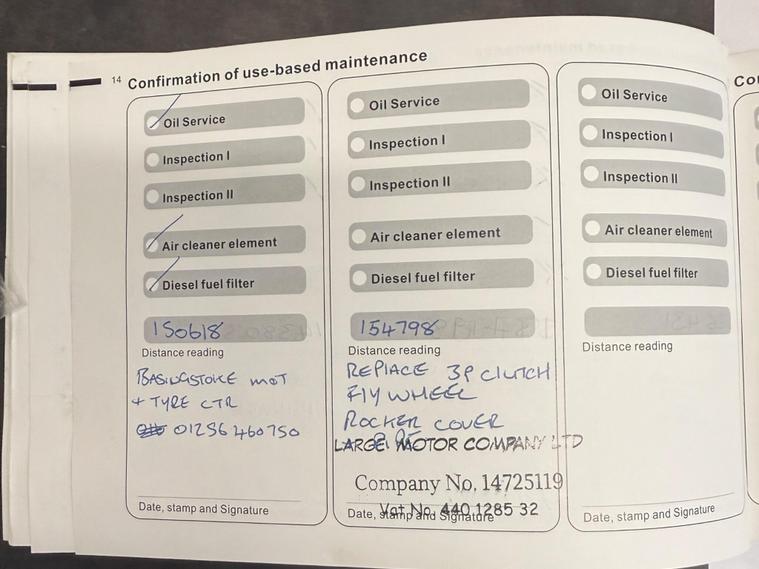 14 Confirmation of use-based maintenance
Oil Service
Inspection I
Inspection II
Air cleaner element
Diesel fuel filter
150618
Distance reading
BASINGSTOKE MOT
+ TYRE CTR
01256 460750
Date, stamp and Signature
Oil Service
Inspection I
Inspection II
Air cleaner element
Diesel fuel filter
154798
Distance reading
REPLACE 3P CLUTCH
FLYWHEEL
ROCKER COVER
LARGE MOTOR COMPANY LTD
Company No. 14725119
Vat No. 440 1285 32
Date, stamp and Signature
Oil Service
Inspection I
Inspection II
Air cleaner element
Diesel fuel filter
Distance reading
Date, stamp and Signature
Co